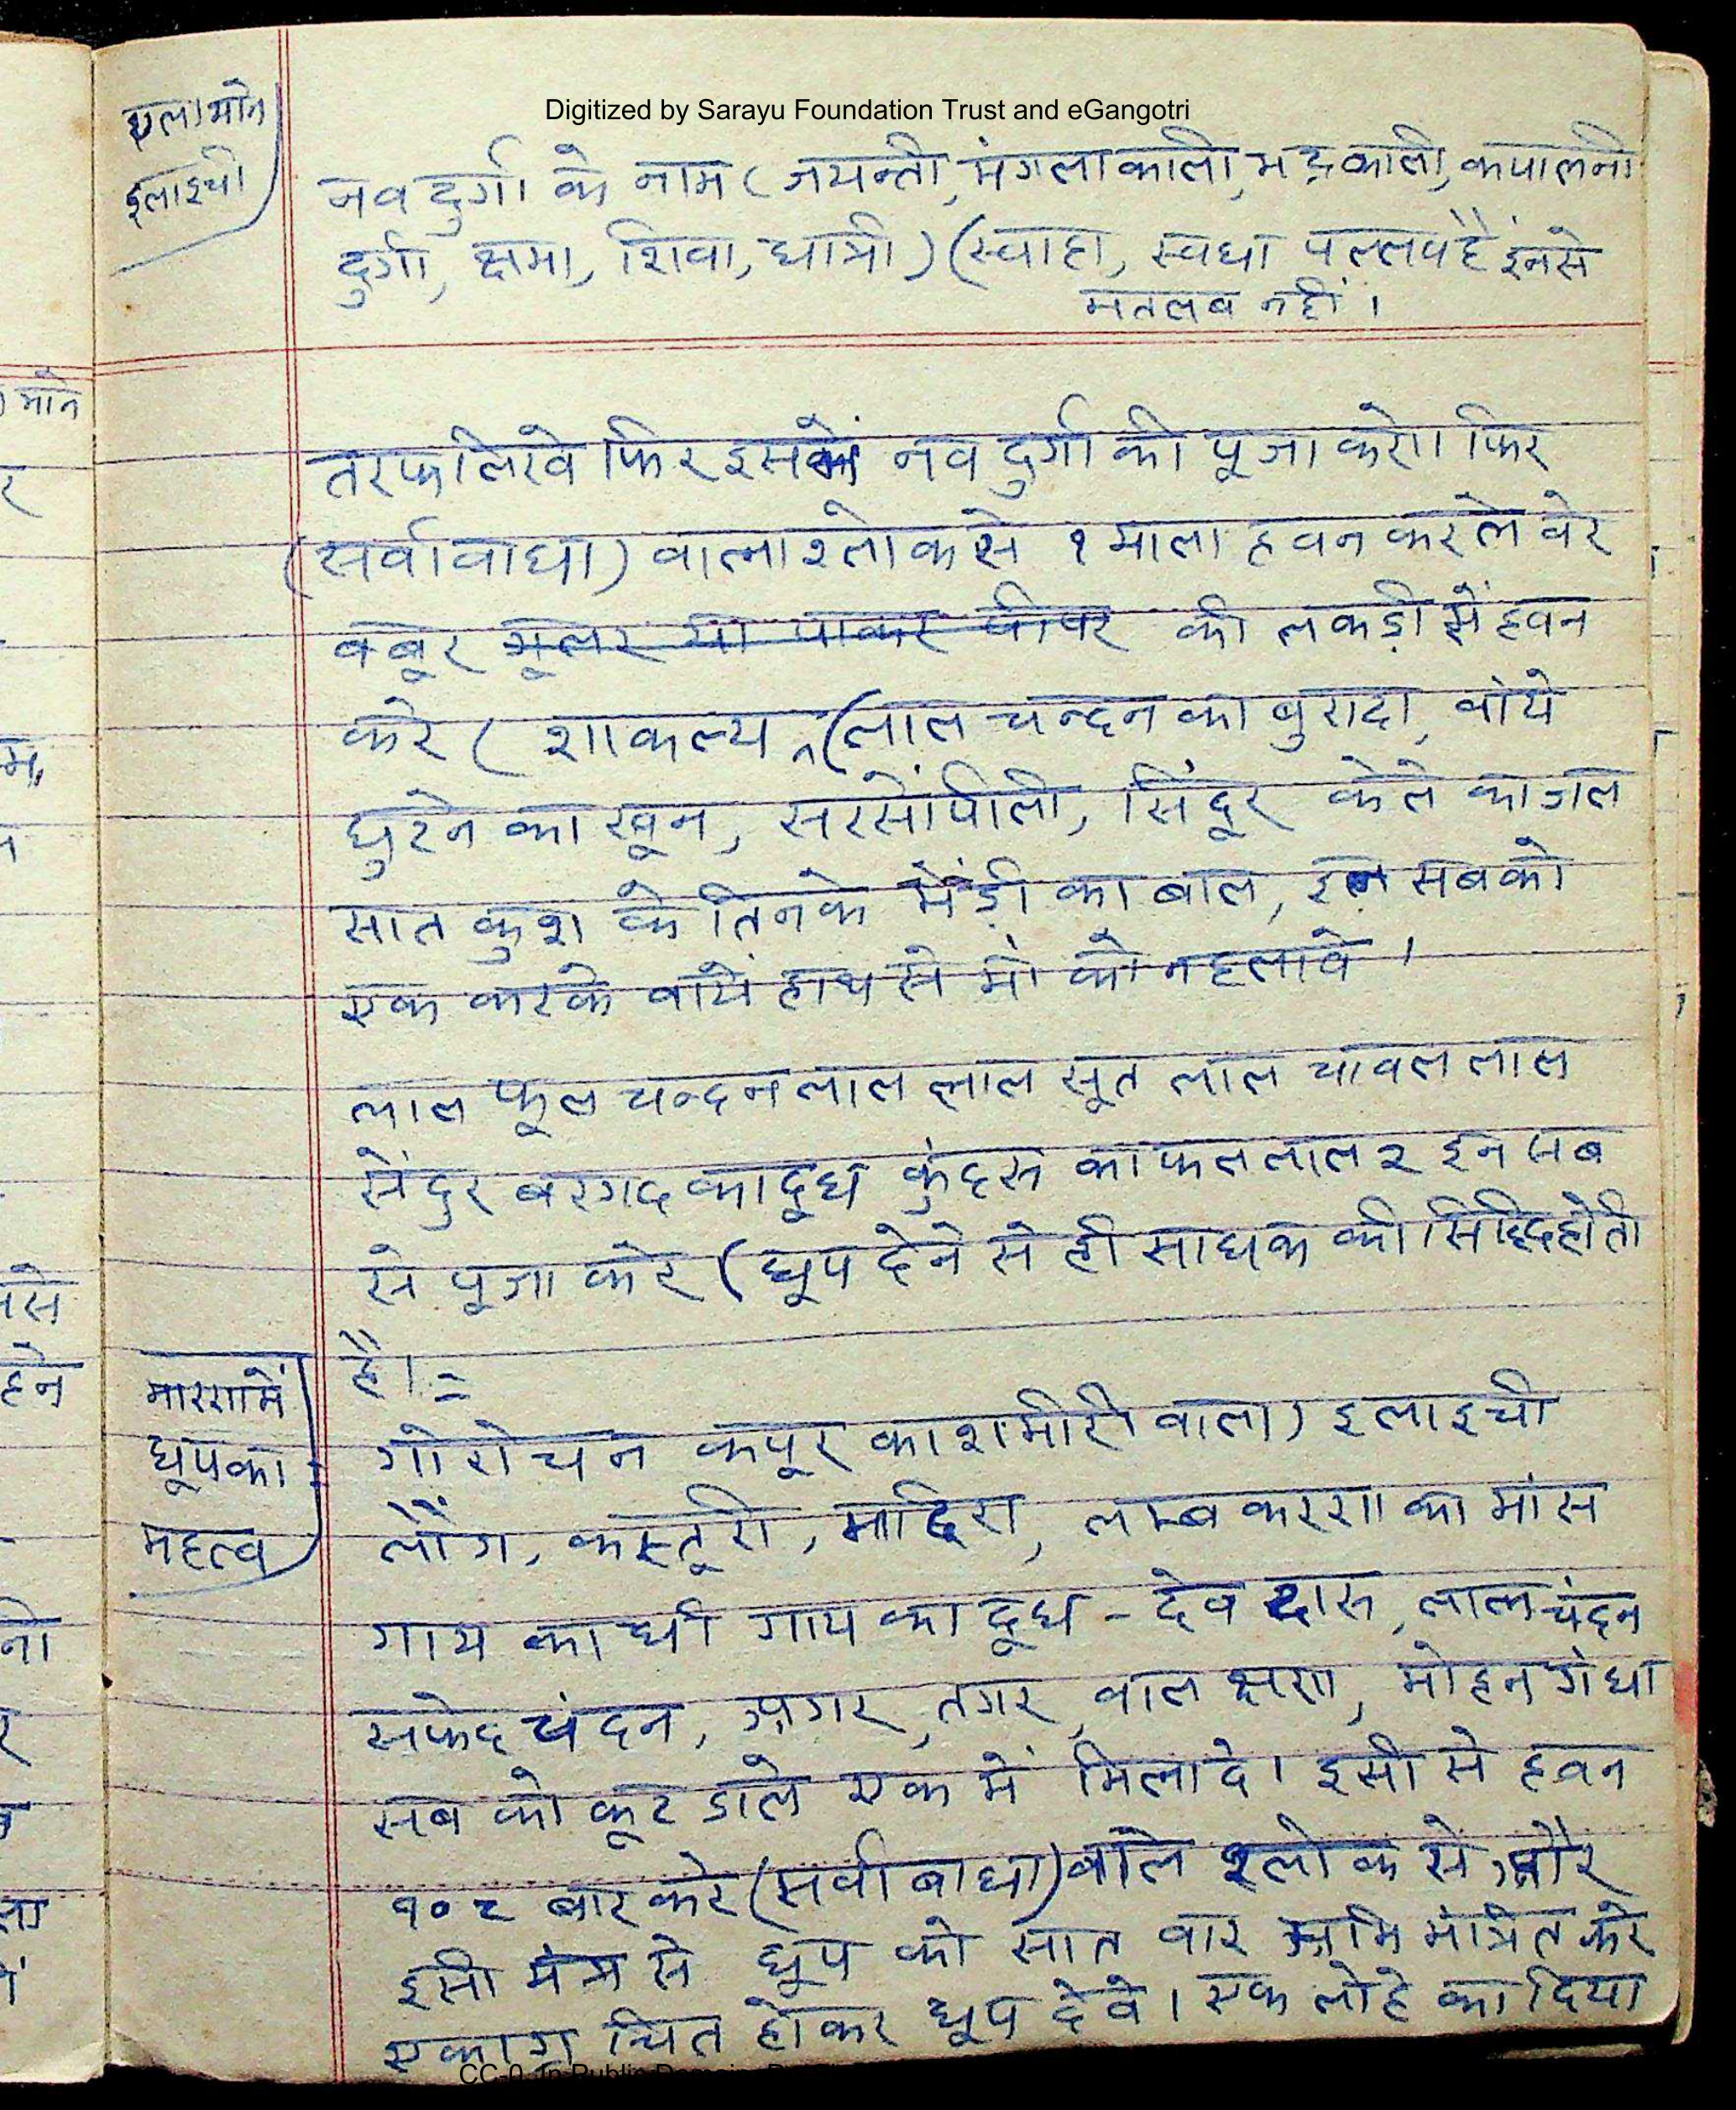 Digitized by Sarayu Foundation Trust and eGangotri
एला माने
इलाइची
नव दुर्गा के नाम (जयन्ती, मंगला काली, भद्रकाली, कपालनी
दुर्गा, क्षमा, शिवा, धात्री) (स्वाहा, स्वधा पल्लव है इनसे
मतलब नहीं ।
तरफ लिखे फिर इसमें नव दुर्गा की पूजा करे।। फिर
(सर्वावाधा) वाला श्लोक से १ माला हवन करले वेर
बबूर गूलर या पाकर पीपर की लकड़ी से हवन
करे ( शाकल्य, (लाल चन्दन का बुरादा, वांये
घुटने का खून, सरसों पीली, सिंदूर केले का जल
सात कुश के तिनके भेंड़ी का बाल, इन सबको
एक करके वायें हाथ से माँ को नहलावे ।
लाल फूल चन्दन लाल लाल सूत लाल चावल लाल
सेंदुर बरगद का दूध कुंदरु का फल लाल २ इन सब
से पूजा करे (धूप देने से ही साधक की सिद्धि होती
है। =
मारण में
धूप का
महत्व
गोरोचन कपूर काशमीरी वाला) इलाइची
लौंग, कस्तूरी, मदिरा, लम्ब करण का मांस
गाय का घी गाय का दूध - देव दारु, लाल चंदन
सफेद चंदन, अगर, तगर, वाल क्षण, मोहन गंधा
सब को कूट डाले एक में मिलादे। इसी से हवन
१०८ बार करे (सर्वा बाधा) वाले श्लोक से, और
इसी मंत्र से धूप को सात वार अभि मंत्रित करे
एकाग्र चित होकर धूप देवे। एक लोहे का दिया
CC-0. In Public Domain.